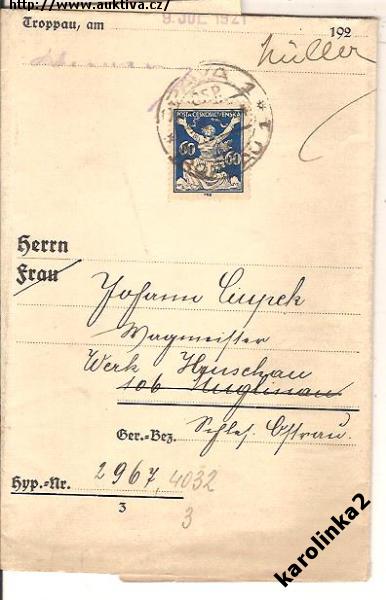 https://www.auktiva.cz/
9. JUL 1921
Troppau, am 192
Müller
OPAVA 1
ČSP.
POŠTA ČESKOSLOVENSKÁ
60 60
Herrn
Frau
Johann Ciupek
Wagmeister
Werk Hruschau
Schles. Ostrau.
Ger.-Bez.
Hyp.-Nr. 2967, 4032
3
3
karolinka2